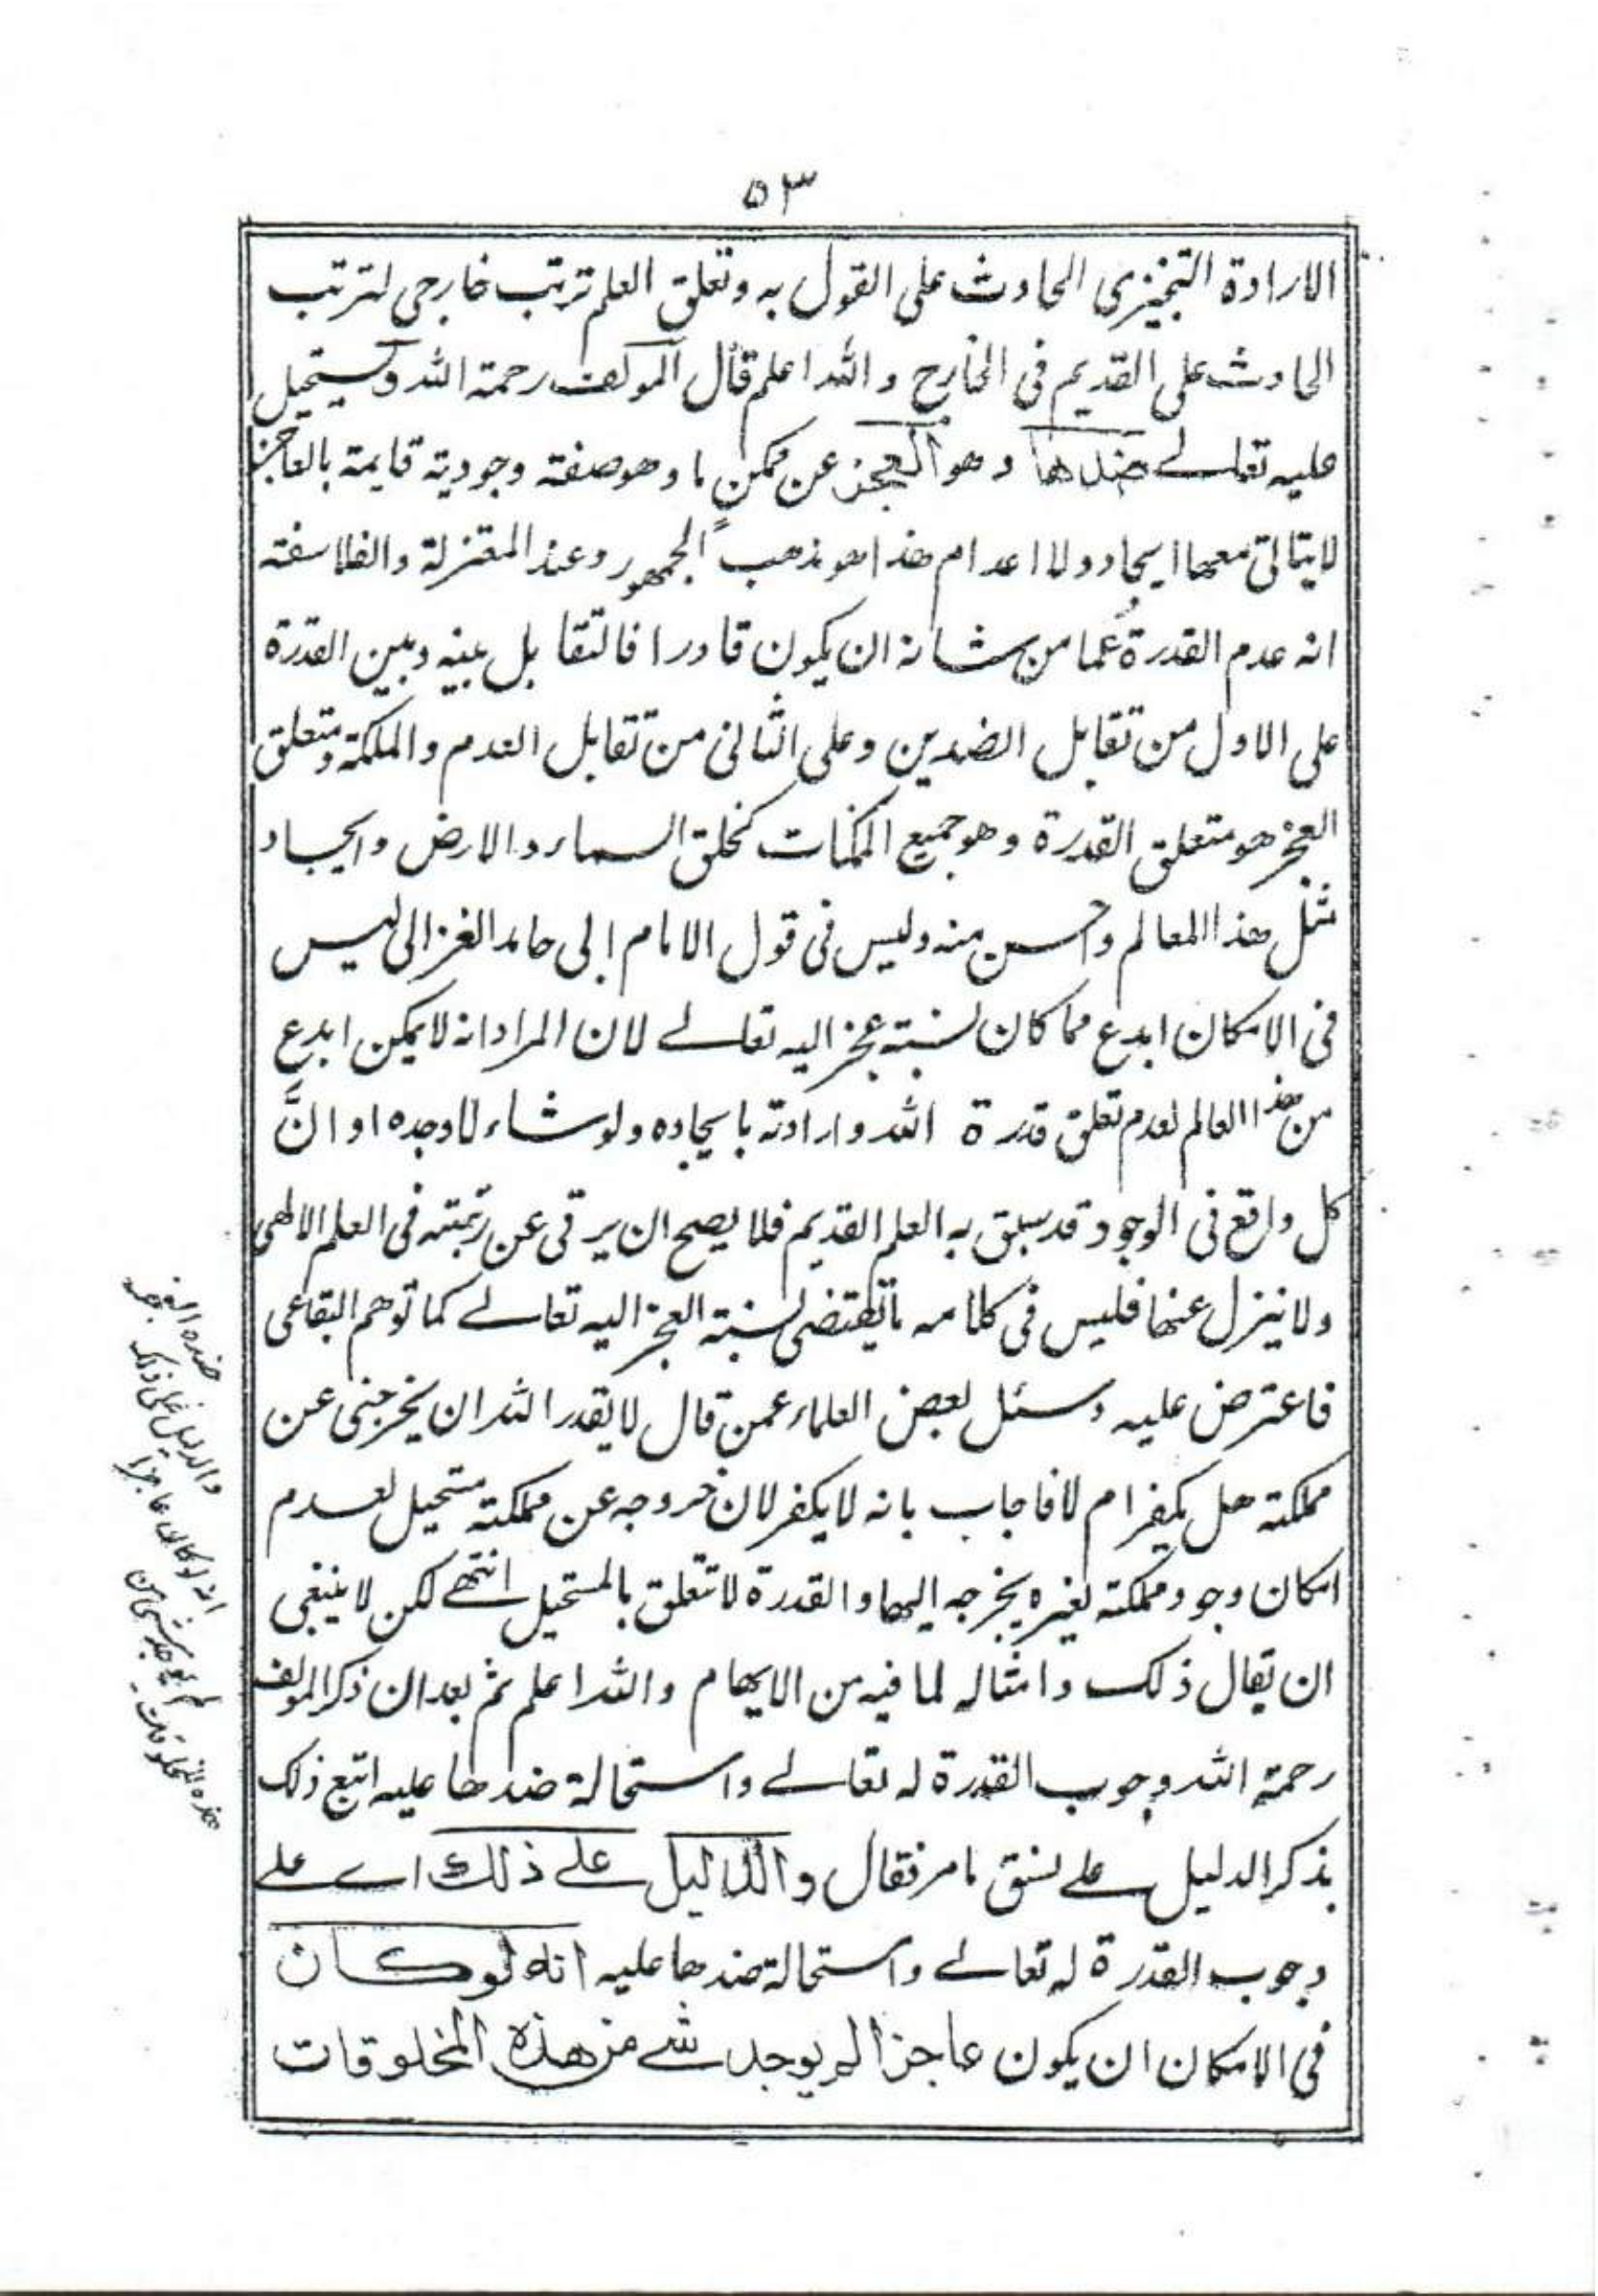 ٥٣
الارادة التنجيزى الحادث على القول به وتعلق العلم ترتب خارجى لترتب
الحادث على القديم فى الخارج والله اعلم قال المولف رحمة الله ويستحيل
عليه تعالے ضدها وهو العجز عن ممكن ما وهو صفته وجودية قايمة بالعاجز
لايتاتى معها ايجاد ولا اعدام هذا هو مذهب الجمهور وعند المعتزلة والفلاسفة
انه عدم القدرة عما من شانه ان يكون قادرا فالتقابل بينه وبين القدرة
على الاول من تقابل الضدين وعلى الثانى من تقابل العدم والملكة ومتعلق
العجز هو متعلق القدرة وهو جميع الممكنات كخلق السماء والارض وايجاد
مثل هذا العالم واحسن منه وليس فى قول الامام ابى حامد الغزالى ليس
فى الامكان ابدع مما كان نسبة عجز اليه تعالے لان المراد انه لايمكن ابدع
من هذا العالم لعدم تعلق قدرة الله وارادته بايجاده ولو شاء لاوجده او انَّ
كل واقع فى الوجود قد سبق به العلم القديم فلا يصح ان يرقى عن رتبته فى العلم الالهى
ولا ينزل عنها فليس فى كلامه ما يقتضى نسبة العجز اليه تعالے كما توهم البقاعى
فاعترض عليه وسئل بعض العلماء عمن قال لايقدر الله ان يخرجنى عن
مملكته هل يكفر ام لا فاجاب بانه لا يكفر لان خروجه عن مملكته مستحيل لعدم
امكان وجود مملكة لغيره يخرجه اليها والقدرة لا تتعلق بالمستحيل انتهے لكن لا ينبغى
ان يقال ذلك وامثاله لما فيه من الايهام والله اعلم ثم بعد ان ذكر المولف
رحمة الله وجوب القدرة له تعالے واستحالة ضدها عليه اتبع ذلك
بذكر الدليل علے نسق مامر فقال والدليل علے ذلك اے علے
وجوب القدرة له تعالے واستحالة ضدها عليه انه لو كان
فى الامكان ان يكون عاجزا لم يوجد شے من هذه المخلوقات
ضده العجز
والدليل على ذلك
انه لو كان عاجزا
لم يوجد شى من
هذه المخلوقات